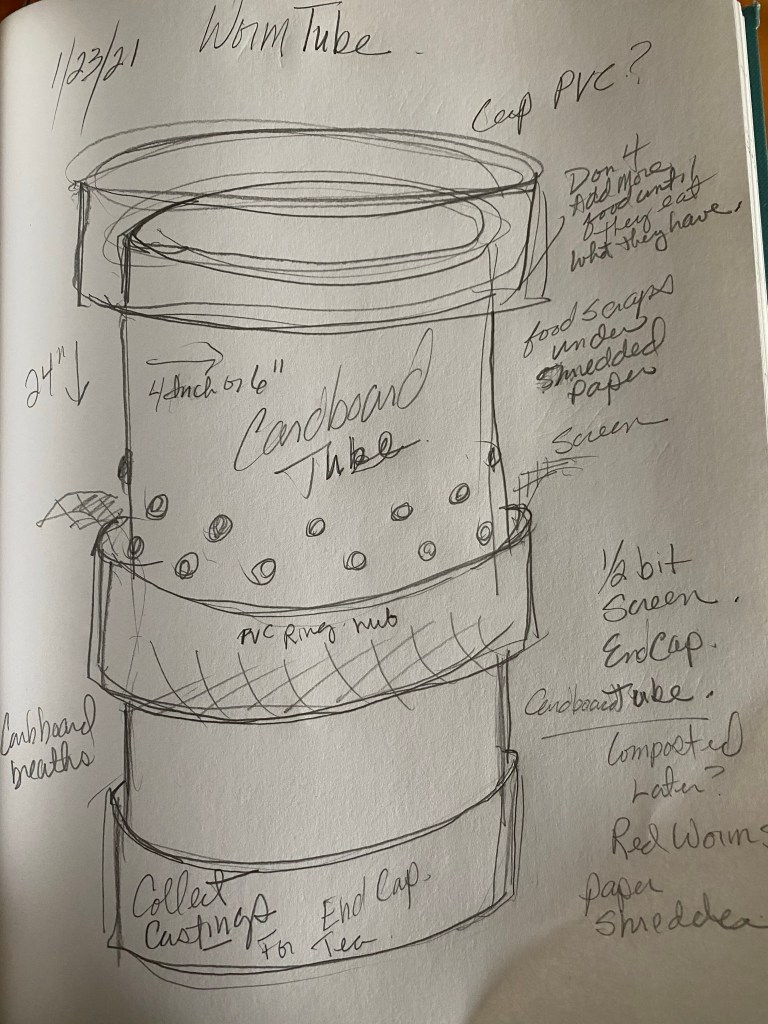 1/23/21
Worm Tube
Cap PVC?
Don't
Add More
food until
they eat
what they have.
24"
4 inch or 6"
Cardboard
Tube
food scraps
under
Shredded
paper
Screen
1/2 bit
Screen.
End Cap.
Cardboard Tube.
PVC Ring
Cardboard
breaths
Composted
Later?
Red Worms
paper
Shredded
Collect
Castings
For
End Cap.
Tea